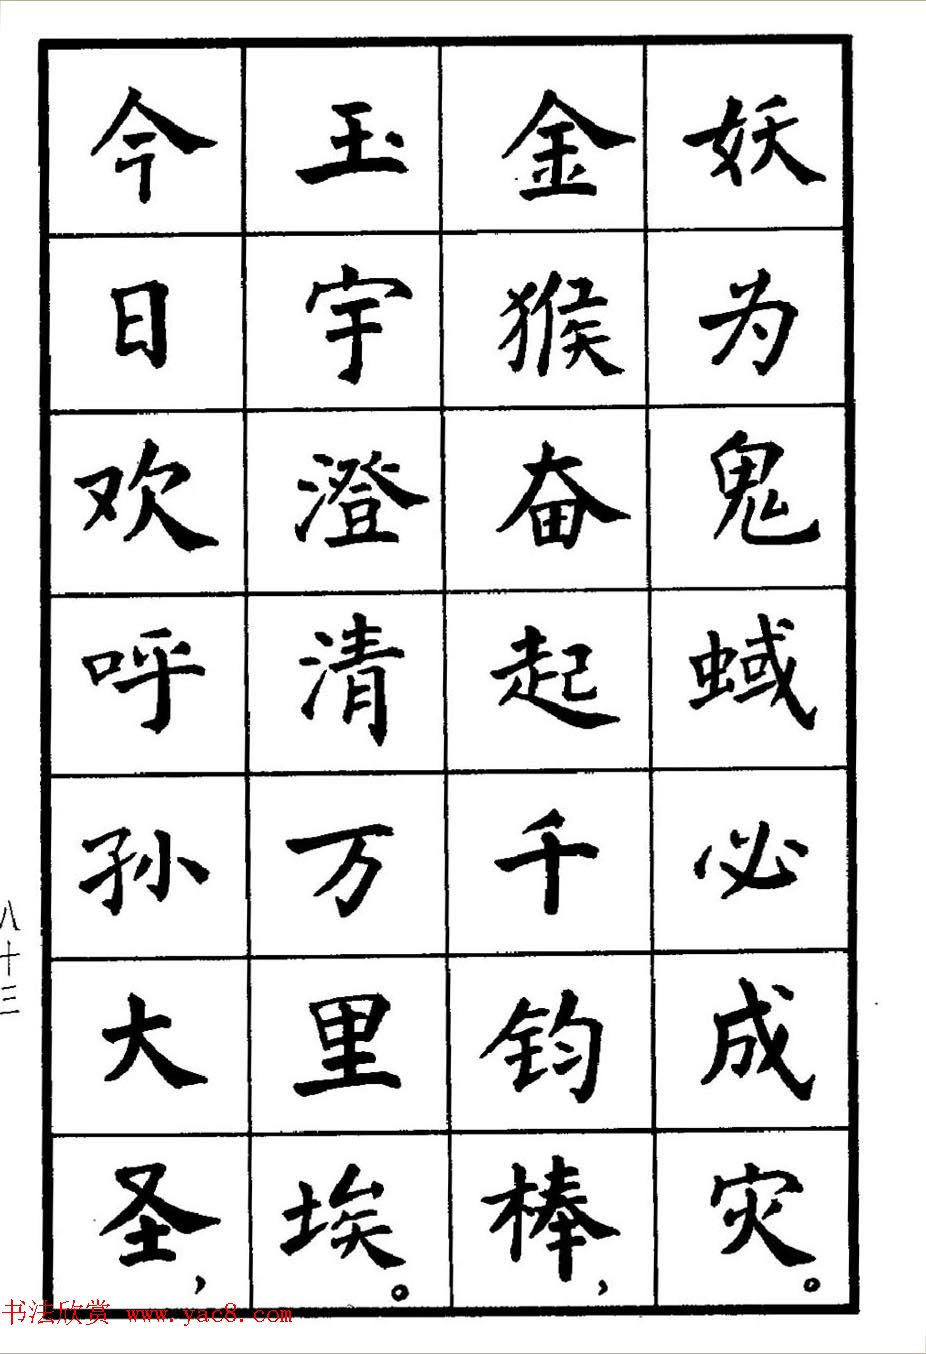 妖为鬼蜮必成灾。
金猴奋起千钧棒，
玉宇澄清万里埃。
今日欢呼孙大圣，
八十三
书法欣赏 www.yac8.com